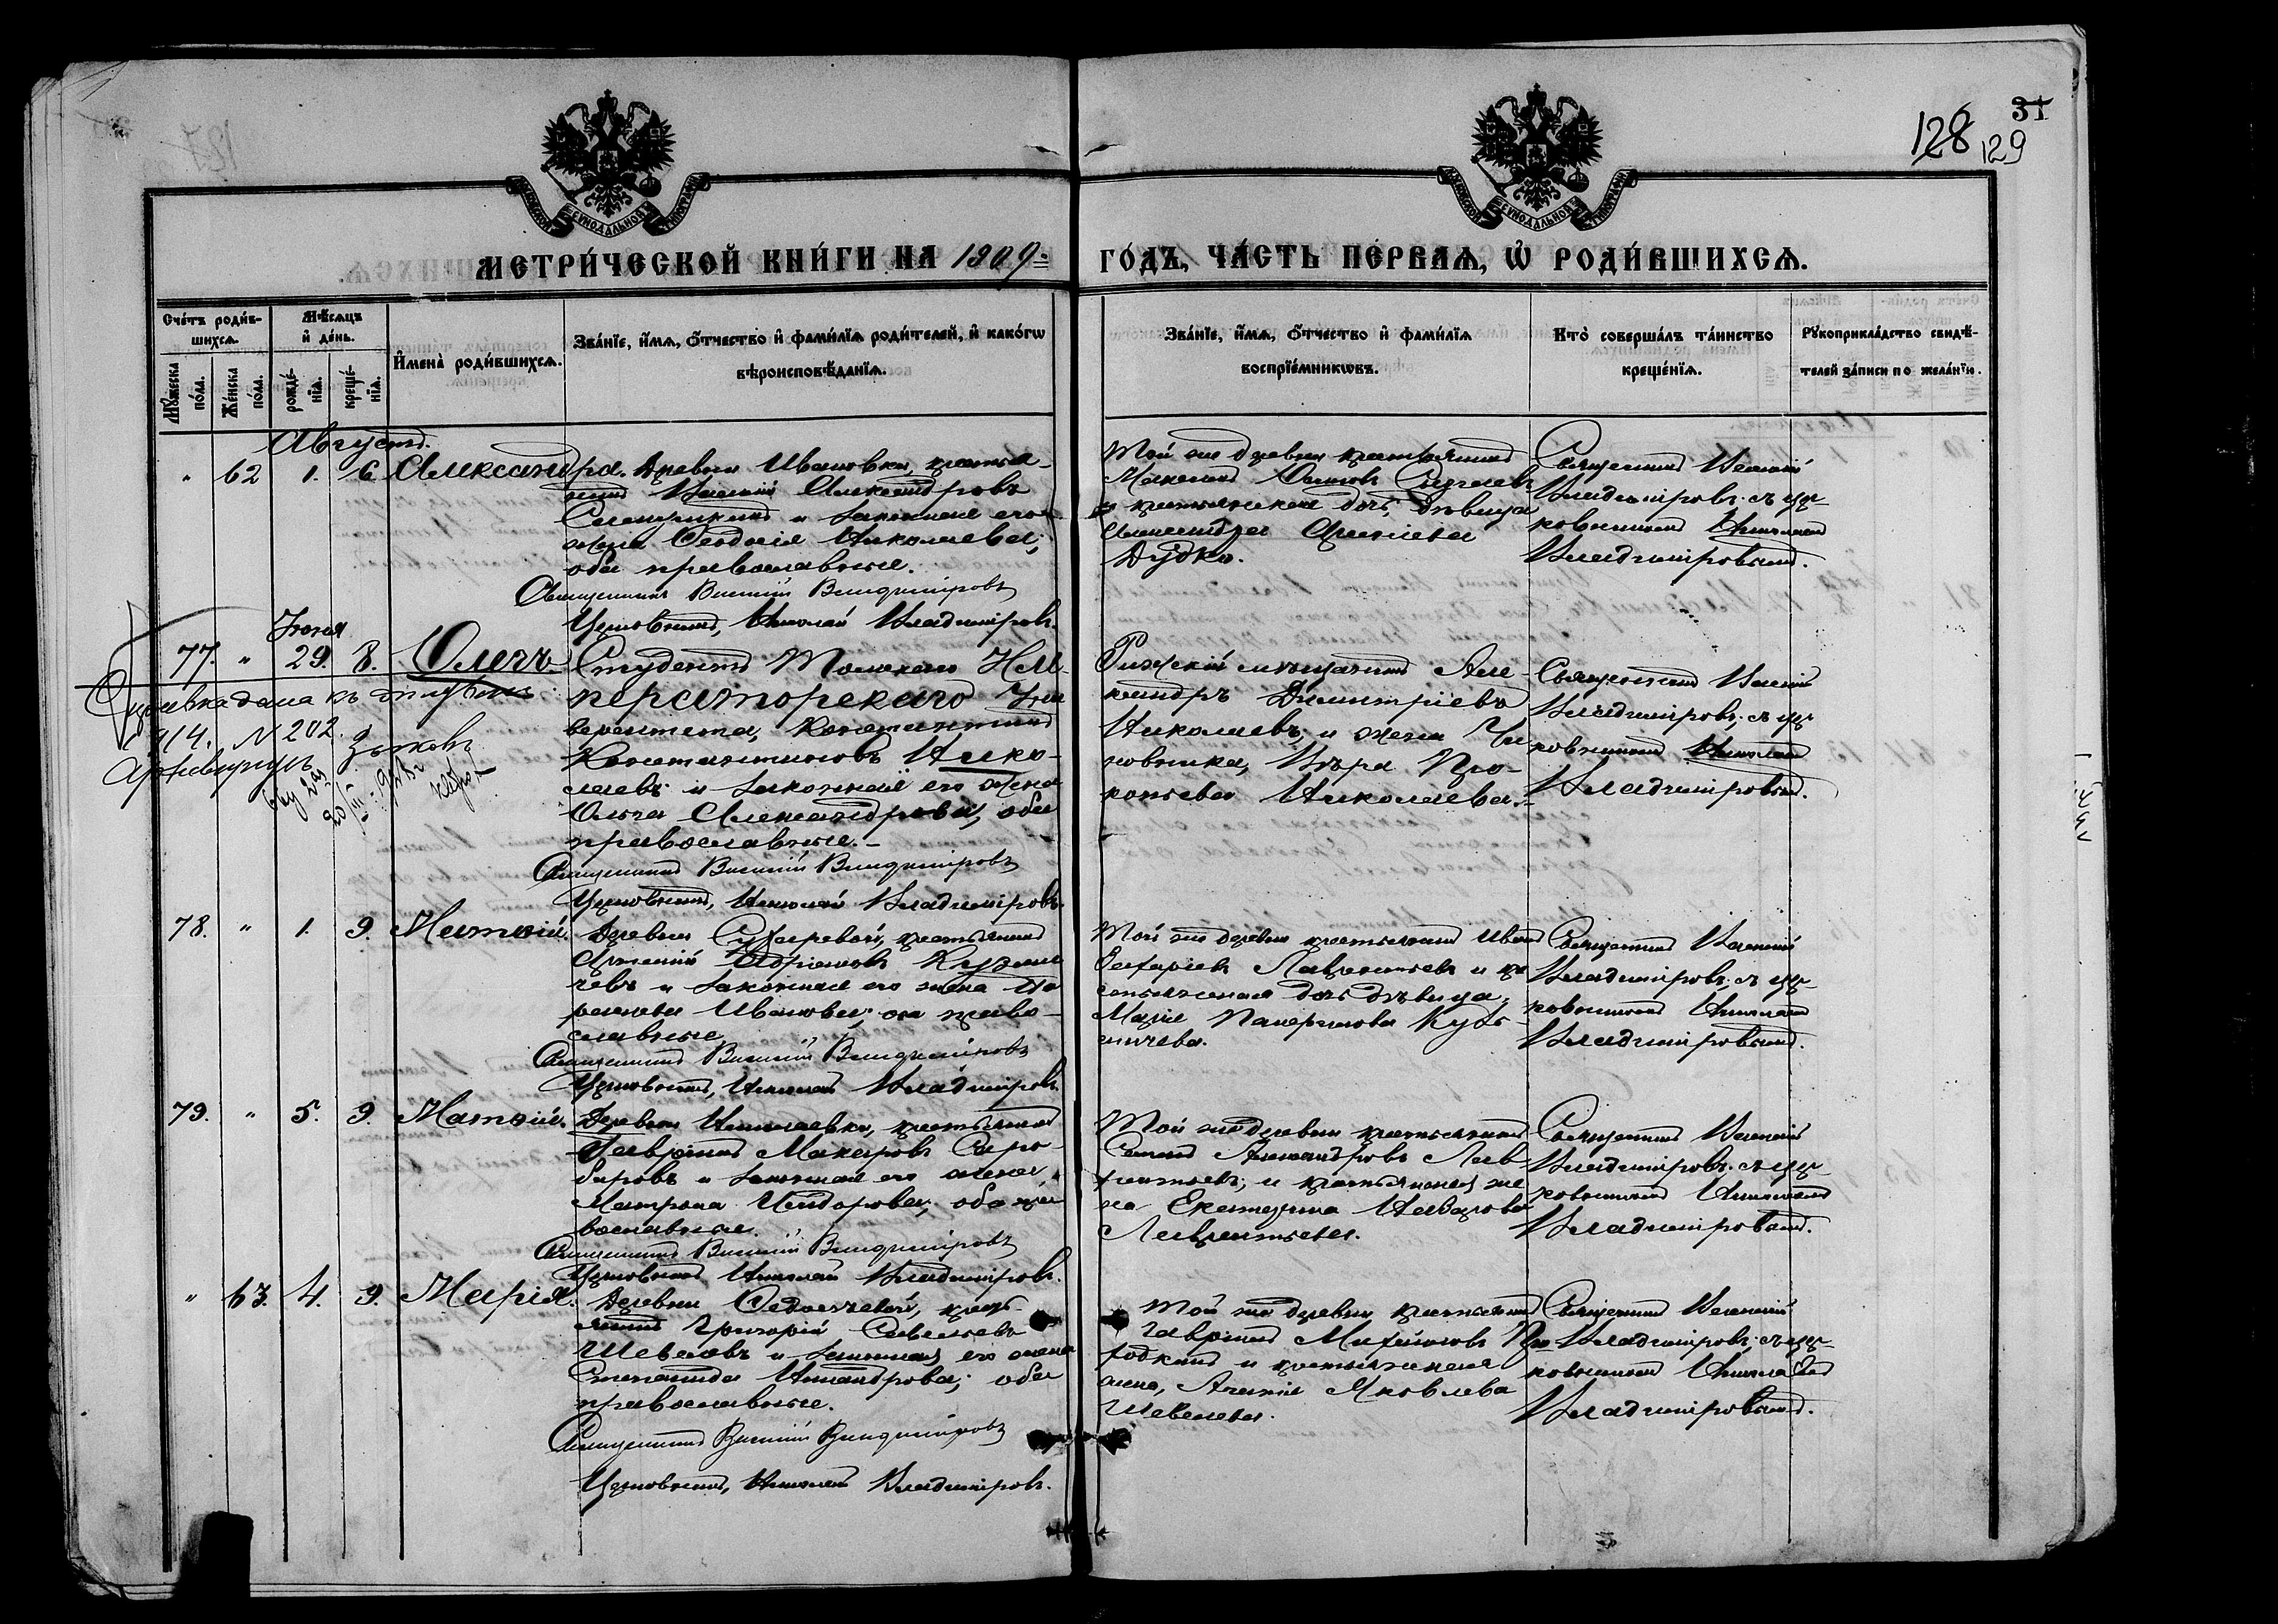 31
128 129
МЕТРИ́ЧЕСКОЙ КНИ́ГИ НА 1909 ГО́ДЪ, ЧА́СТЬ ПЕ́РВАѦ, Ѡ҆ РОДИ́ВШИХСѦ.
Сче́тъ роди́в-
шихсѧ.
Мꙋ́жеска по́ла.
Же́нска по́ла.
Мѣ́сѧцъ
и҆ де́нь.
рожде́-
нїѧ.
креще́-
нїѧ.
И҆мена̀ роди́вшихсѧ.
Зва́нїе, и҆́мѧ, ѻ҆́тчество и҆ фами́лїѧ роди́телей, и҆ како́гѡ
вѣроисповѣ́данїѧ.
Зва́нїе, и҆́мѧ, ѻ҆́тчество и҆ фами́лїѧ
воспрїе́мникѡвъ.
Кто̀ соверша́лъ та́инство
креще́нїѧ.
Рꙋкоприкла́дство свидѣ́-
телей за́писи по жела́нїю.
Августъ.
" 62 1. 6. Александра. Деревни Ивановки, крестья-
нинъ Василій Александровъ
и законная его
жена Ѳеодосія Николаева;
оба православные.
Священникъ Василій Владиміровъ
Церковникъ, Николай Владиміровъ.
Той же деревни крестьянинъ
и крестьянская дочь, дѣвица
Александра
Дудко.
Священникъ Василій
Владиміровъ съ цер-
ковникомъ Николаемъ
Владиміровымъ.
Іюня
77. " 29. 8. Олегъ
Студентъ Томскаго ИМ-
ператорскаго Уни
верситета, Константинъ
Константиновъ Нико-
лаевъ и законная его жена
Ольга Александрова, оба
православные.
Священникъ Василій Владиміровъ
Церковникъ, Николай Владиміровъ.
Рижскій мѣщанинъ Але-
ксандръ Димитріевъ
Николаевъ; и жена Чи
новника, Вѣра Про-
копьева Николаева.
Священникъ Василій
Владиміровъ; съ цер
ковникомъ Николаемъ
Владиміровымъ.
Справка дана къ
1914. N 202.
Архиваріусъ
78. " 1. 9. Матѳій.
Деревни крестьянинъ
Кузьми
чевъ и законная его жена Па
раскева Иванова; оба право-
славные.
Священникъ Василій Владиміровъ
Церковникъ, Николай Владиміровъ.
Той же деревни крестьянинъ Иванъ
Захаріевъ Лаврентьевъ и кре
стьянская дочь дѣвица,
Марія Кузь-
мичева.
Священникъ Василій
Владиміровъ; съ цер-
ковникомъ Николаемъ
Владиміровымъ.
79. " 5. 9. Матѳій.
Деревни Николаевки, крестьянинъ
Гавріилъ Макаровъ
и законная его жена,
Матрона Исидорова; оба пра
вославные.
Священникъ Василій Владиміровъ
Церковникъ Николай Владиміровъ.
Той же деревни крестьянинъ
Александровъ Лав-
рентьевъ; и крестьянская же
на Екатерина Назарова
Лаврентьева.
Священникъ Василій
Владиміровъ. съ цер-
ковникомъ Николаемъ
Владиміровымъ.
" 63. 4. 9. Марія.
Деревни кресть-
янинъ Григорій Савельевъ
Шевелевъ и законная его жена
Степанида Никандрова; оба
православные.
Священникъ Василій Владиміровъ
Церковникъ, Николай Владиміровъ.
Той же деревни крестьянинъ
Гавріилъ Михайловъ Про
ходкинъ и крестьянская
жена, Агапія Яковлева
Шевелева.
Священникъ Василій
Владиміровъ; съ цер-
ковникомъ Николаемъ
Владиміровымъ.